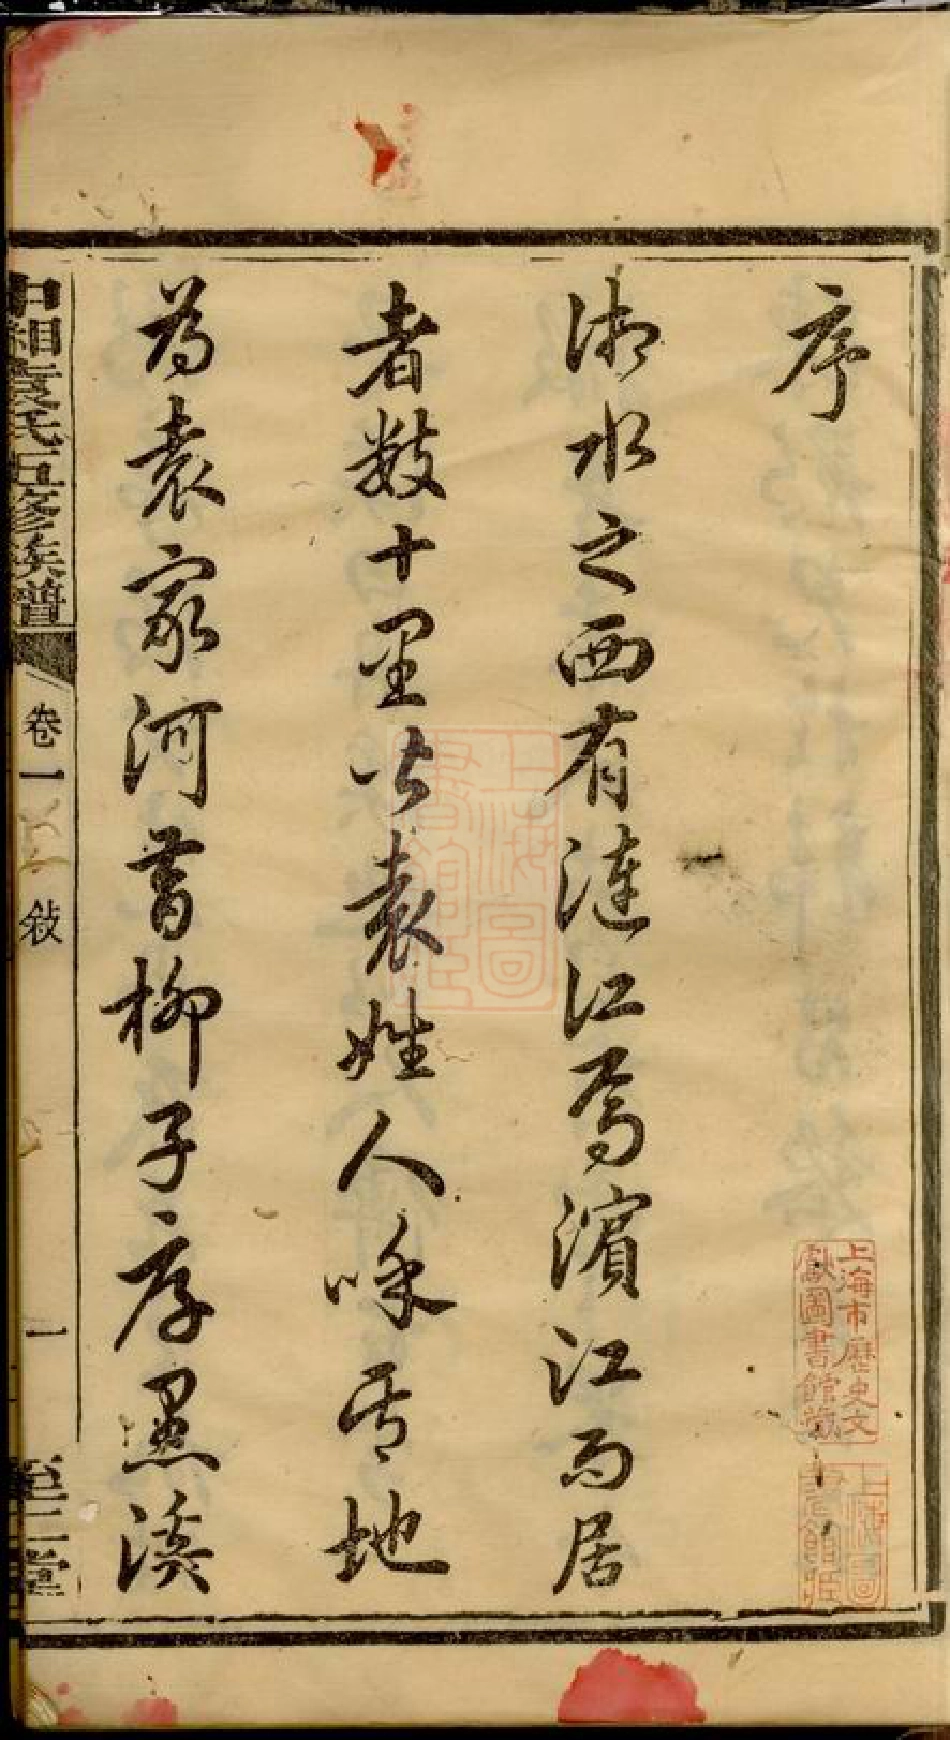 序
湘水之西有漣江焉濱江而居
者數十里皆袁姓人呼其地
為袁家河昔柳子序愚溪
中湘袁氏五修族譜
卷一
敘
一
上海市歷史文
獻圖書館藏
上海圖
書館藏
上海圖
書館藏